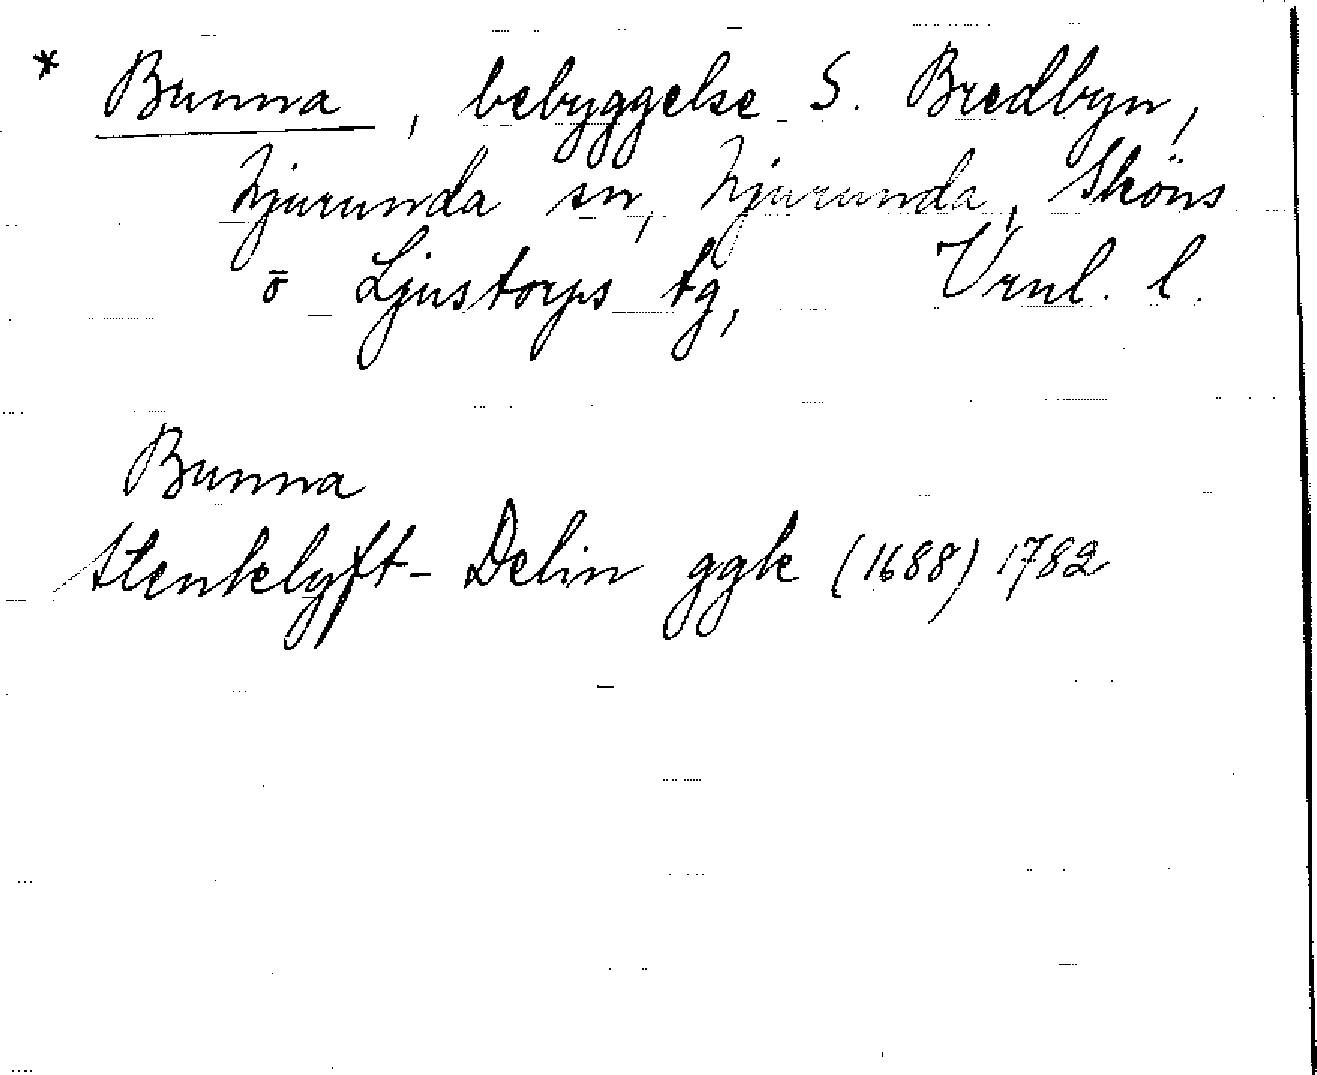 * Bunna, bebyggelse S. Bredbyn,
Njurunda sn, Njurunda, Sköns
o Ljustorps tg, Vrnl. l.
Bunna
Stenklyft-Delin ggk (1688) 1782